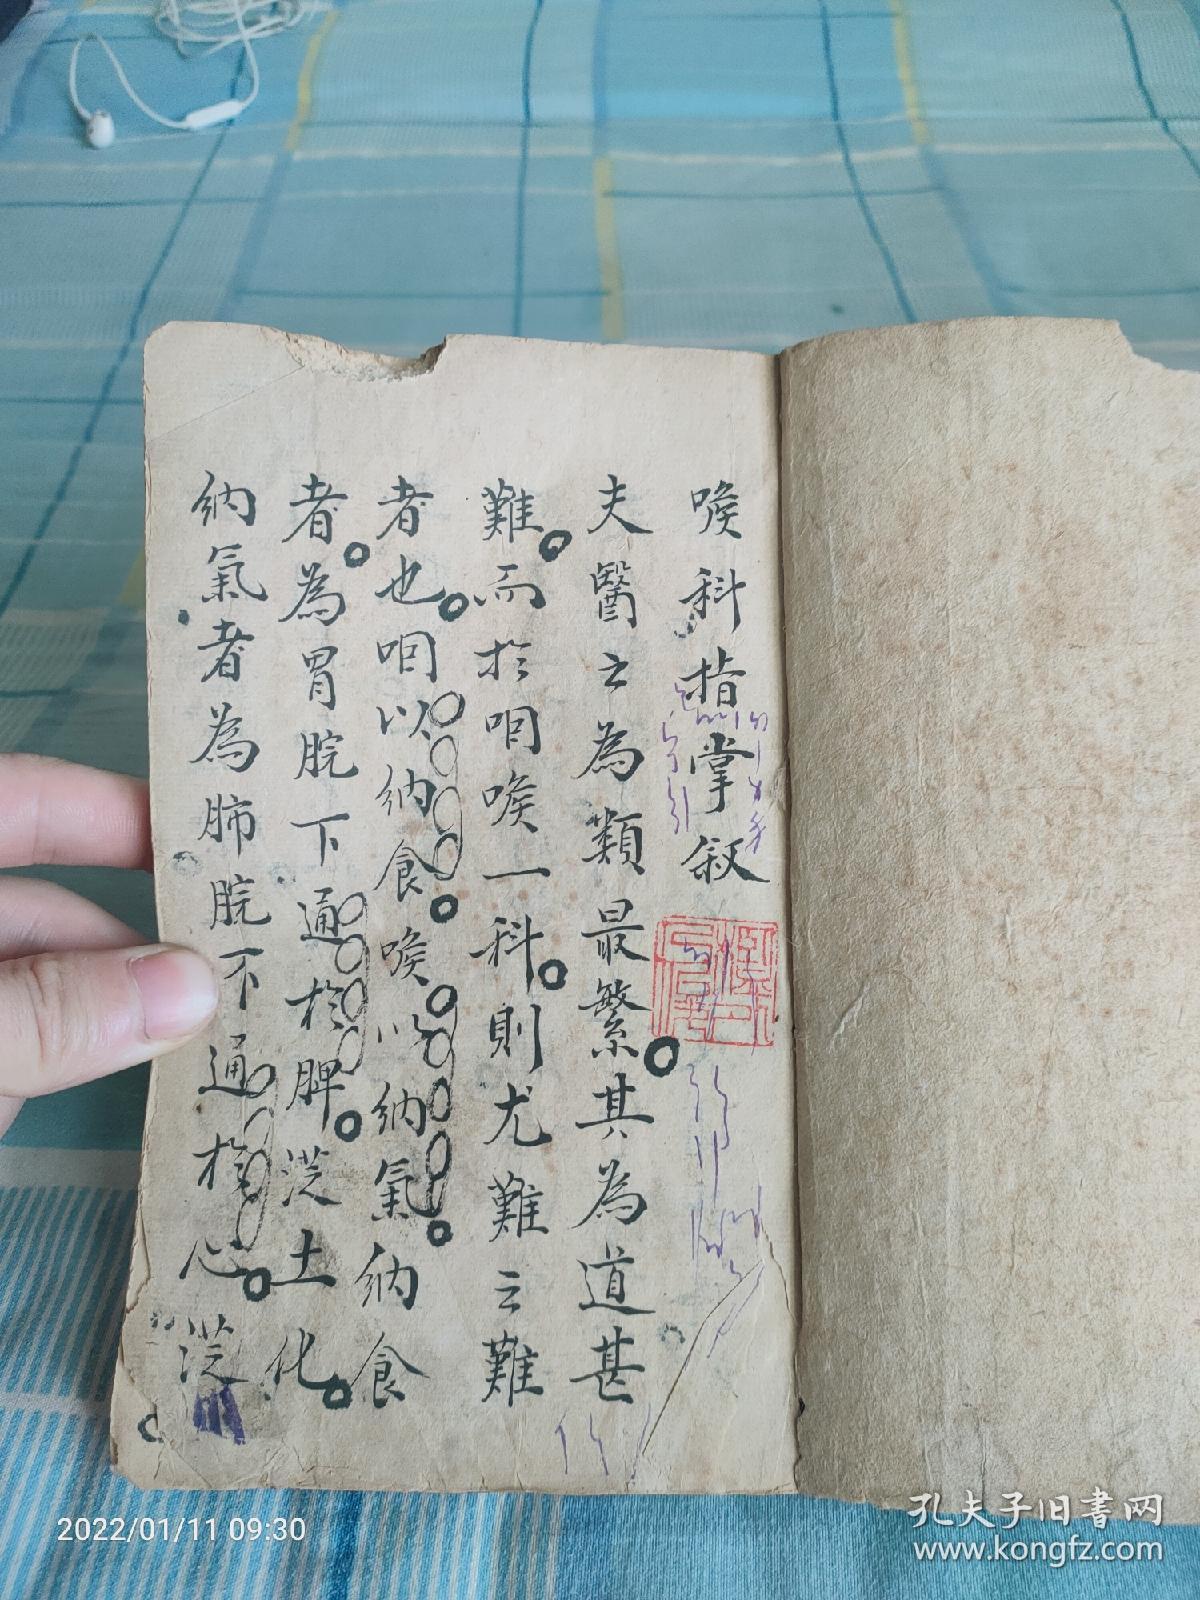 喉科指掌叙
夫醫之為類最繁其為道甚
難而於咽喉一科則尤難之難
者也咽以納食喉以納氣納食
者為胃脘下通於脾從土化
納氣者為肺脘下通於心從
2022/01/11 09:30
孔夫子旧书网
www.kongfz.com